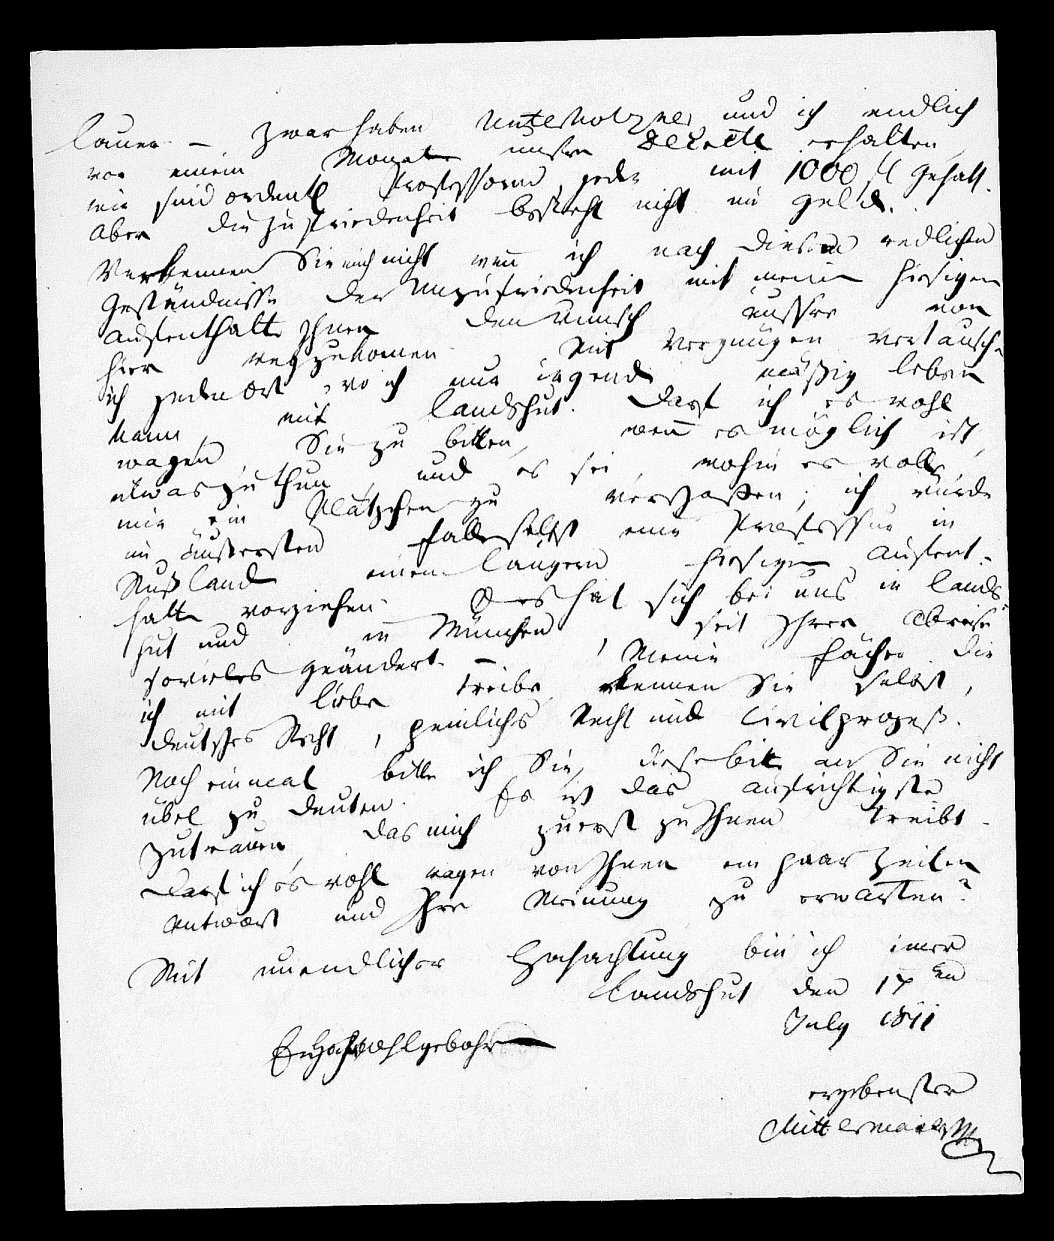 lauer. – Zwar haben Unterholzner und ich endlich
vor einem Monate unsre Decrete erhalten,
wir sind ordentl Professoren, jeder mit 1000 fl Gehalt.
Aber die Zufriedenheit besteht nicht im Gelde.
Verkennen Sie mich nicht wenn ich nach diesem redlichen
Geständnisse der Unzufriedenheit mit meinem hiesigen
Aufenthalte Ihnen den Wunsch äussre von
hier wegzukomen. Mit Vergnügen vertausche
ich jeden Ort, wo ich nur irgend mäßig leben
kann, mit Landshut. Darf ich es wohl
wagen, Sie zu bitten, wenn es möglich ist,
etwas zu thun, und es sei, wohin es wolle,
mir ein Plätzchen zu verschaffen; ich würde
im äußersten Falle selbst eine Professur in
Rußland einem längern hiesigen Aufent-
halte vorziehen. Es hat sich bei uns in Lands-
hut und in München, seit Ihrer Abreise
sovieles geändert. – Meine Fächer die
ich mit Liebe treibe, kennen Sie selbst,
deutsches Recht, peinliches Recht und Civilprozeß.
Noch einmal bitte ich Sie, diese bitte an Sie nicht
übel zu deuten. Es ist das aufrichtigste
Zutrauen, das mich zuerst zu Ihnen treibt.
Darf ich es wohl wagen von Ihnen ein paar Zeilen
Antwort und Ihre Meinung zu erwarten?
Mit unendlicher Hochachtung bin ich imer
Landshut den 17 en
July 1811
Eu Hochwohlgebohr
ergebenster
Mittermaier